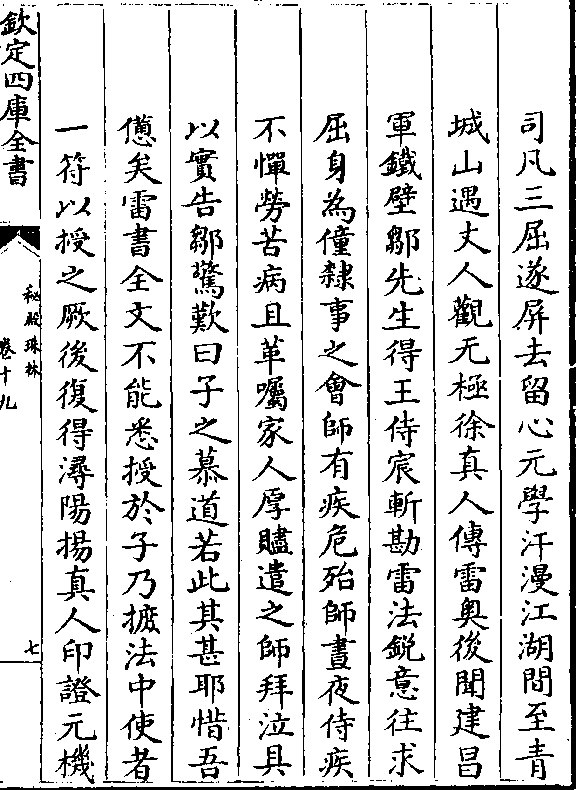 司凡三屈遂屏去留心元學汗漫江湖間至青
城山遇丈人觀无極徐真人傳雷奥後聞建昌
軍鐵壁鄒先生得王侍宸斬勘雷法鋭意往求
屈身為僮隸事之會師有疾危殆師晝夜侍疾
不憚勞苦病且革囑家人厚贐遣之師拜泣具
以實告鄒驚歎曰子之慕道若此其甚耶惜吾
憊矣雷書全文不能悉授於子乃摭法中使者
一符以授之厥後復得潯陽揚真人印證元機
欽定四庫全書
秘殿珠林
卷十九
七